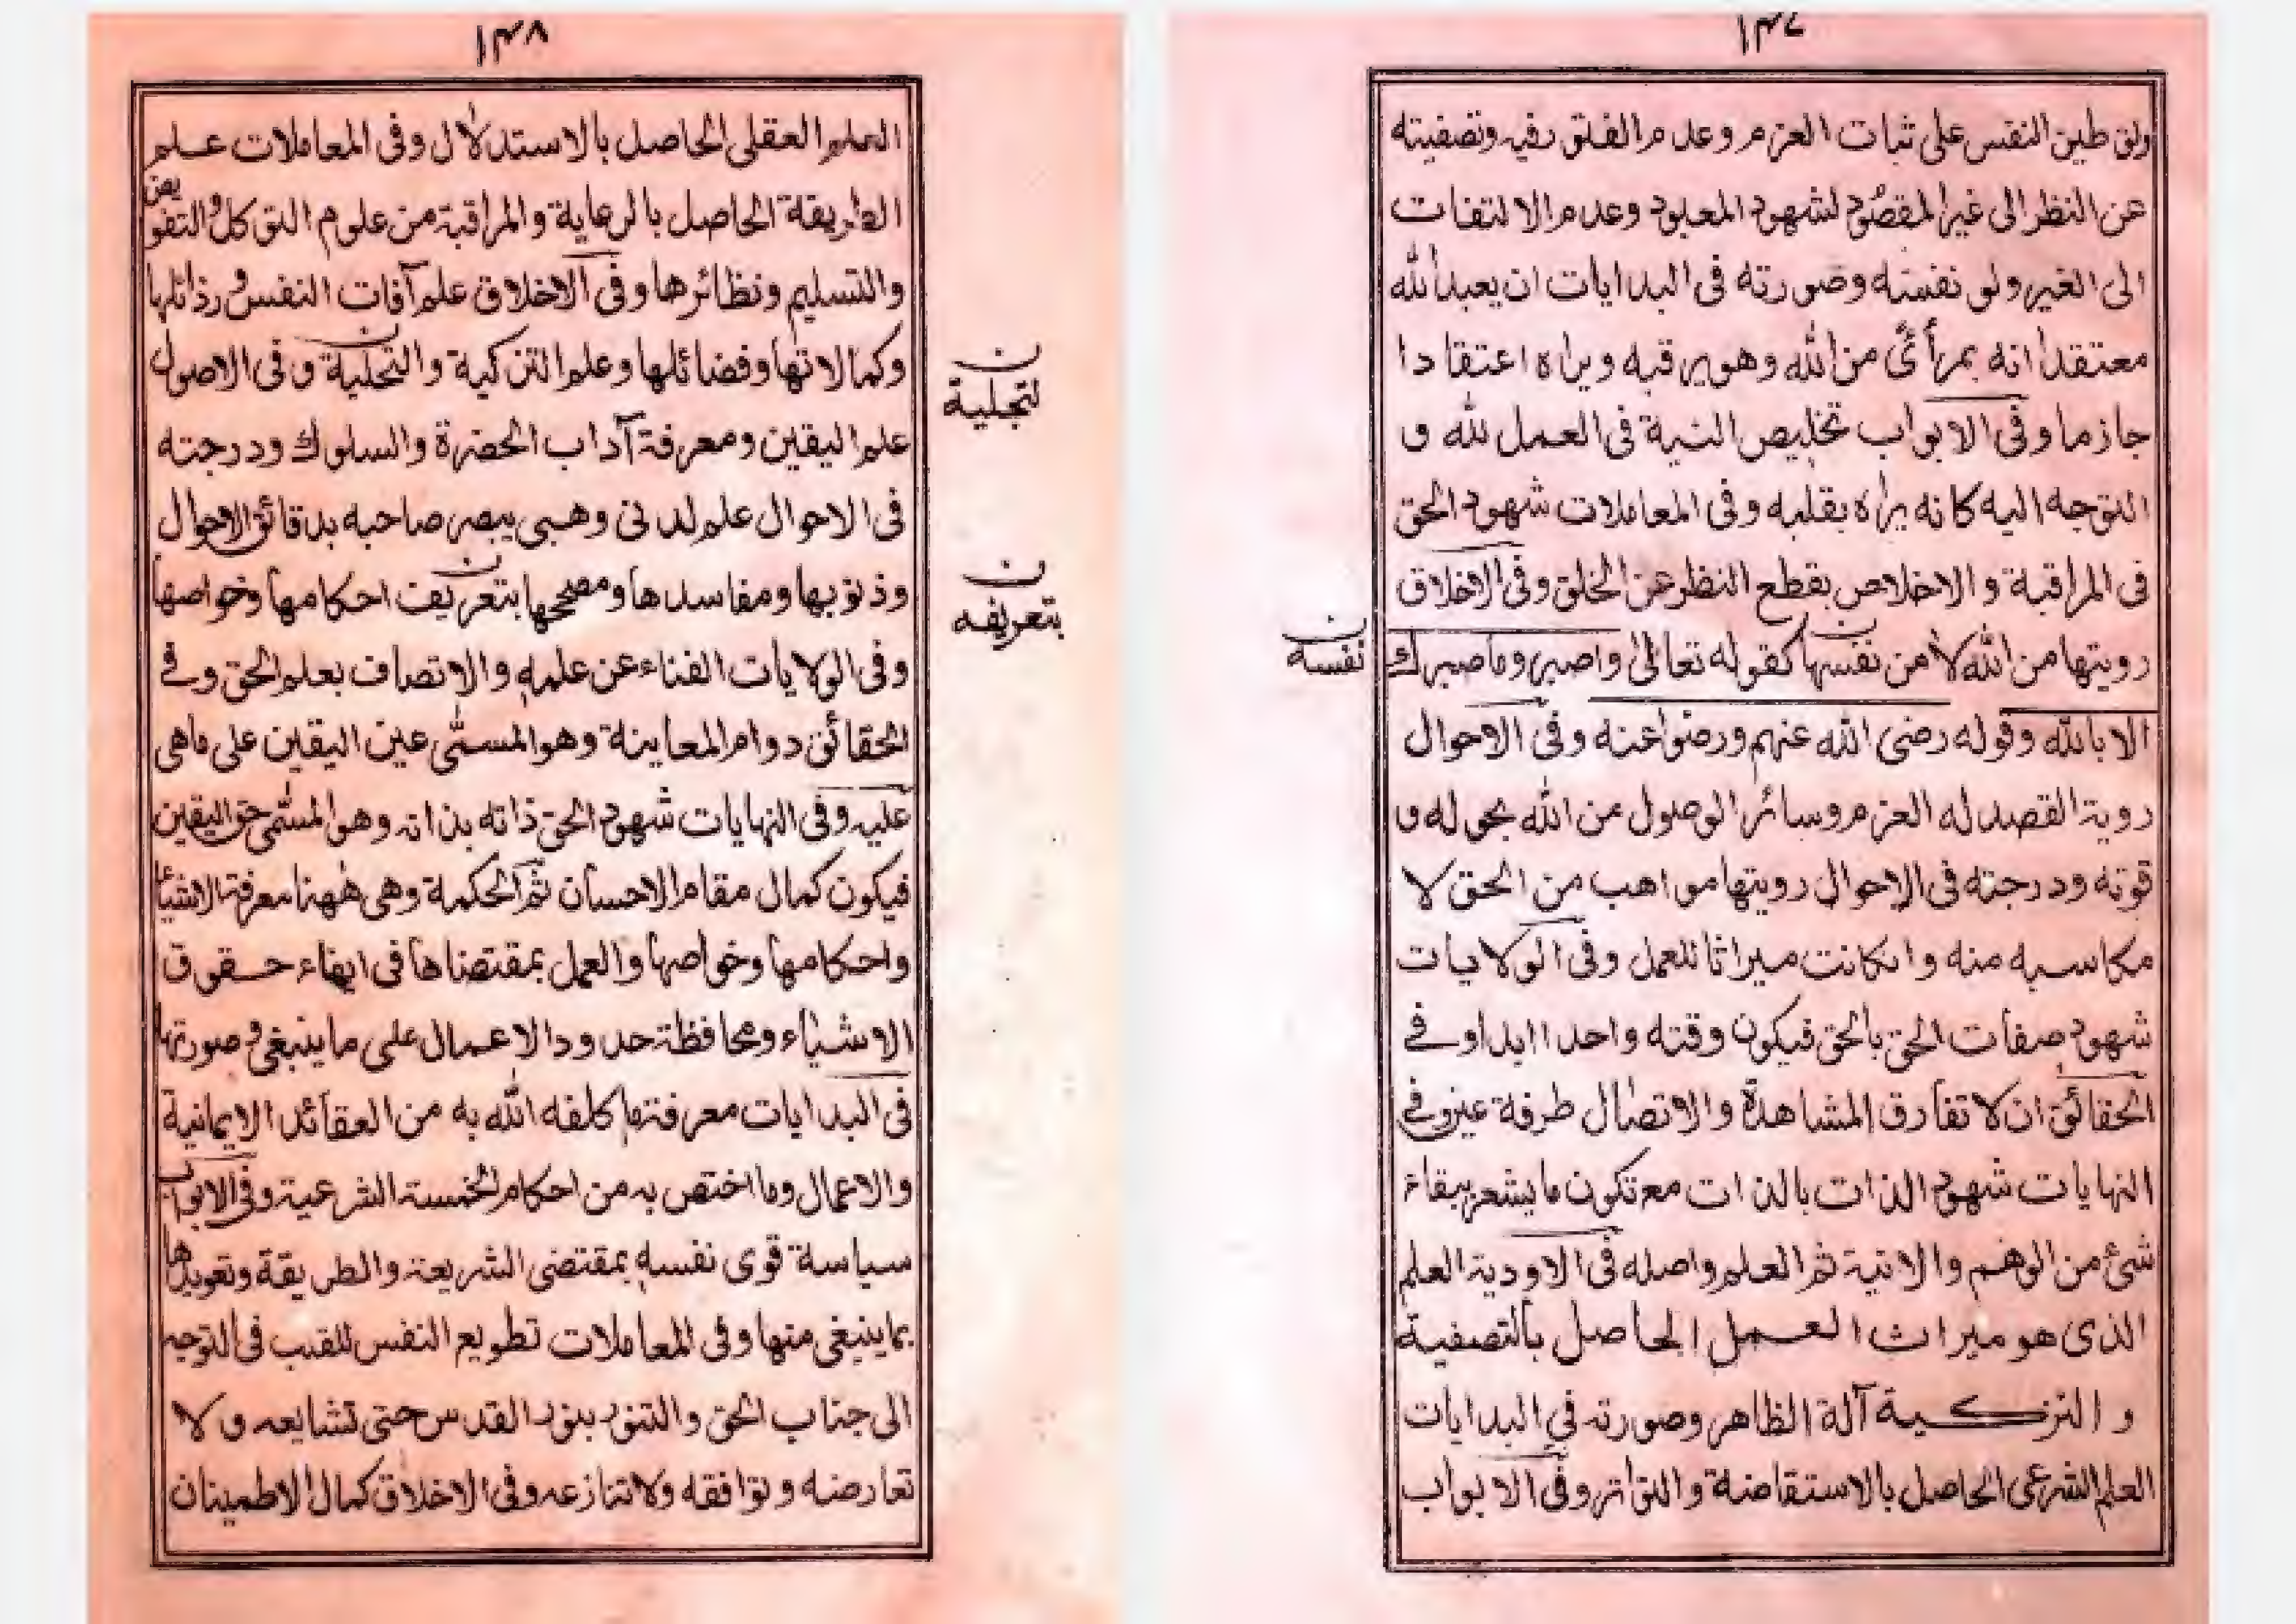 ١٣٧
وتوطين النفس على ثبات العزم وعدم القلق فيه وتصفيته
عن النظر الى غير المقصود لشهود المعبود وعدم الالتفات
الى الغير ولو نفسه وصورته فى البدايات ان يعبد الله
معتقدا انه بمرأئ من الله وهو يرقبه ويراه اعتقادا
جازما وفى الابواب تخليص النية فى العمل لله و
التوجه اليه كانه يراه بقلبه وفى المعاملات شهود الحق
فى المراقبة والاخلاص بقطع النظر عن الخلق وفى الاخلاق
رويتها من الله لا من نفسها كقوله تعالى واصبر وما صبرك
ن
نفسه
الا بالله وقوله رضى الله عنهم ورضوا عنه وفى الاحوال
روية القصد له العزم وسائر الوصول من الله بحوله و
قوته ودرجته فى الاحوال رويتها مواهب من الحق لا
مكاسبه منه وانكانت ميراثا للعمل وفى الولايات
شهود صفات الحق بالحق فيكون وقته واحدا ابدا وفے
الحقائق ان لا تفارق المشاهدة والاتصال طرفة عين وفے
النهايات شهود الذات بالذات مع تكون ما يشعر ببقاء
شئ من الوهم والانية ثم العلم واصله فى الاودية العلم
الذى هو ميراث العمل الحاصل بالتصفية
و التزكية آلة الظاهر وصورته في البدايات
العلم الشرعى الحاصل بالاستفاضة والتواتر وفى الابواب
١٣٨
العلم العقلى الحاصل بالاستدلال وفى المعاملات علم
الطريقة الحاصل بالرعاية والمراقبة من علوم التوكل والتفويض
والتسليم ونظائرها وفى الاخلاق علم آفات النفس ورذائلها
وكمالاتها وفضائلها وعلم التزكية والتحلية وفى الاصول
ن
لتجلية
علم اليقين ومعرفة آداب الحضرة والسلوك ودرجته
فى الاحوال علم لدنى وهبى يبصر صاحبه بدقائق الاحوال
وذنوبها ومفاسدها ومصححها بتعريف احكامها وخواصها
ن
بتعريفه
وفى الولايات الفناء عن علمه والاتصاف بعلم الحق وفے
الحقائق دوام المعاينة وهو المسمى عين اليقين على ماهى
عليه وفى النهايات شهود الحق ذاته بذاته وهو المسمى حق اليقين
فيكون كمال مقام الاحسان ثم الحكمة وهى ههنا معرفة الاشياء
واحكامها وخواصها والعمل بمقتضاها فى ايفاء حقوق
الاشياء ومحافظة حدود الاعمال على ما ينبغى وصورتها
فى البدايات معرفتها كلفه الله به من العقائد الايمانية
والاعمال وما اختص به من احكام الخمسة الشرعية وفى الابواب
سياسة قوى نفسه بمقتضى الشريعة والطريقة وتعويدها
بما ينبغى منها وفى المعاملات تطويع النفس للقلب فى التوجه
الى جناب الحق والتنور بنور القدس حتى تشايعه ولا
تعارضه وتوافقه ولا تنازعه وفى الاخلاق كمال الاطمينان